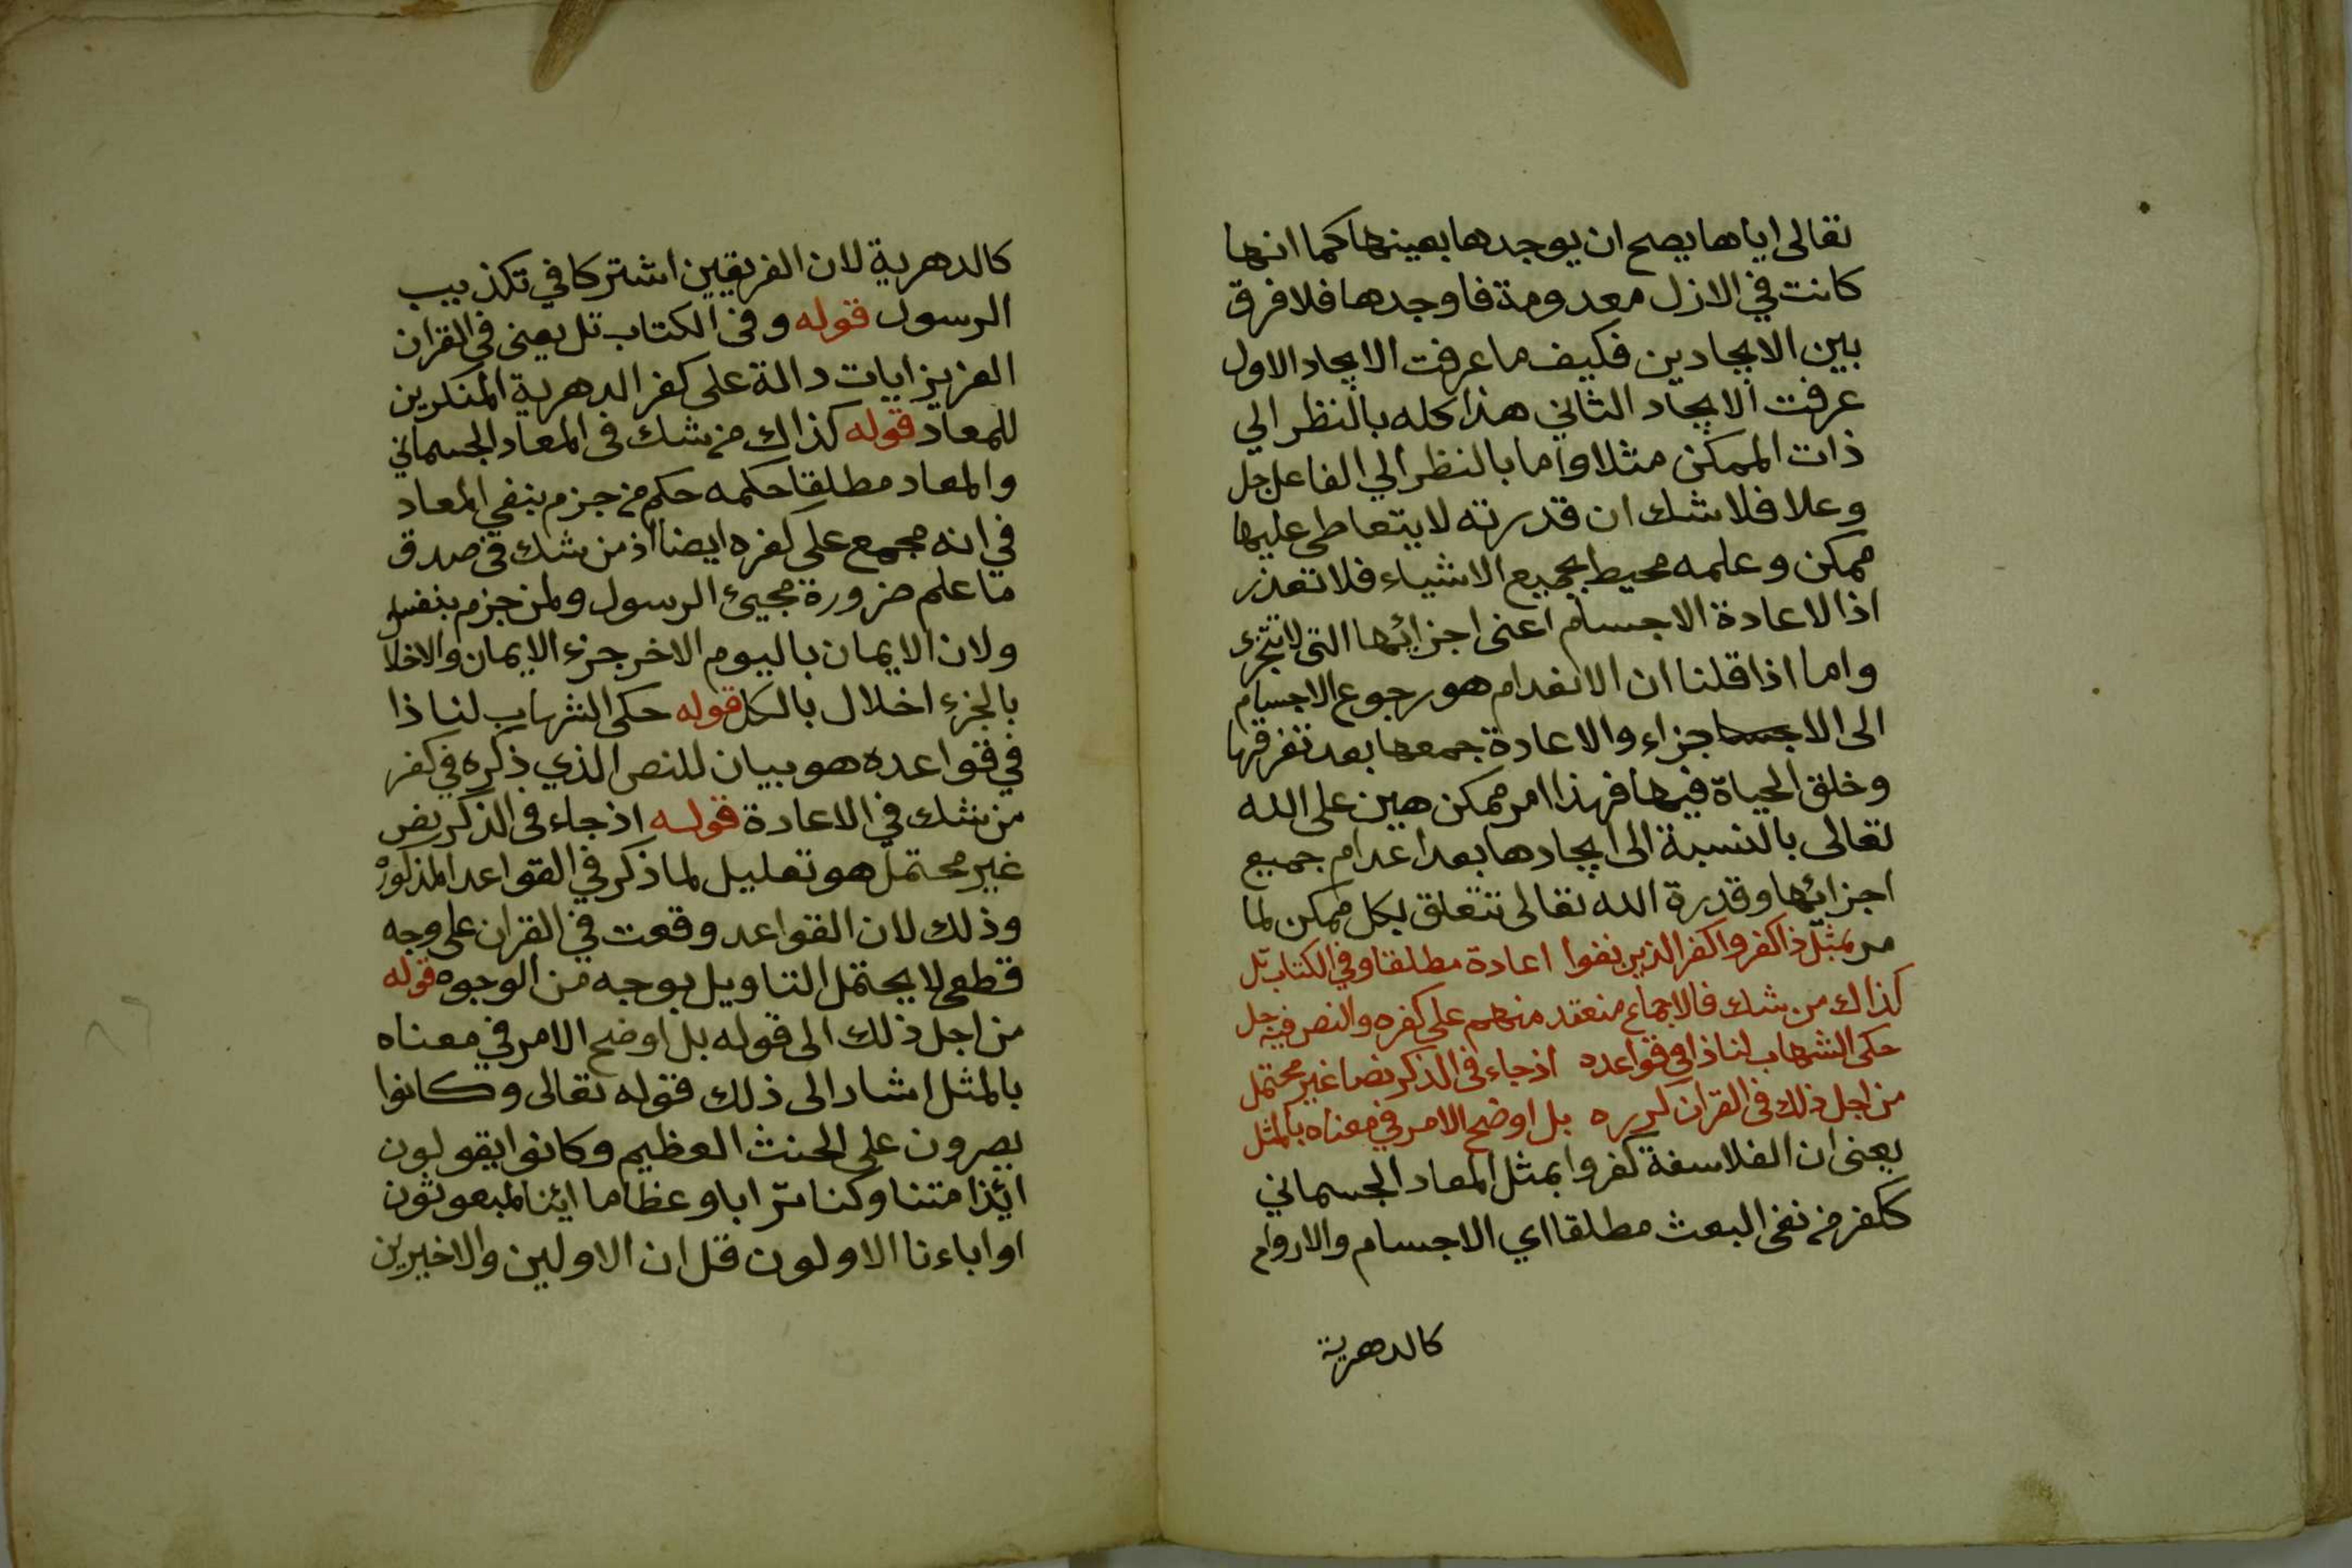 تعالى اياها يصح ان يوجدها بعينها كما انها
كانت في الازل معدومة فاوجدها فلا فرق
بين الايجادين فكيف ما عرفت الايجاد الاول
عرفت الايجاد الثاني هذا كله بالنظر الي
ذات الممكن مثلا واما بالنظر الي الفاعل جل
وعلا فلا شك ان قدرته لا يتعاطى عليها
ممكن وعلمه محيط بجميع الاشياء فلا تعذر
اذا لاعادة الاجسام اعنى اجزائها التى لا تتجزء
واما اذا قلنا ان الانعدام هو رجوع الاجسام
الى الاجزاء والاعادة جمعها بعد تفرقها
وخلق الحياة فيها فهذا امر ممكن هين على الله
تعالى بالنسبة الى ايجادها بعد اعدام جميع
اجزائها وقدرة الله تعالى تتعلق بكل ممكن لما
مر بمثل ذا كفروا كفر الذين نفوا اعادة مطلقا وفي الكتاب تل
كذاك من شك فالاجماع منعقد منهم على كفره والنص فيه جل
حكى الشهاب لنا ذا في قواعده اذ جاء فى الذكر نصا غير محتمل
من اجل ذلك فى القران كرره بل اوضح الامر في معناه بالمثل
يعنى ان الفلاسفة كفروا بمثل المعاد الجسماني
ككفر من نفى البعث مطلقا اي الاجسام والارواح
كالدهرية
كالدهرية لان الفريقين اشتركا في تكذيب
الرسول قوله وفى الكتاب تل يعنى في القران
العزيز ايات دالة على كفر الدهرية المنكرين
للمعاد قوله كذاك من شك فى المعاد الجسماني
والمعاد مطلقا حكمه حكم من جزم بنفي المعاد
في انه مجمع على كفره ايضا اذ من شك في صدق
ما علم ضرورة مجيئ الرسول ولمن جزم بنفيه
ولان الايمان باليوم الاخر جزء الايمان والاخلا
بالجزء اخلال بالكل قوله حكى الشهاب لنا ذا
في قواعده هو بيان للنص الذي ذكره في كفر
من شك في الاعادة قوله اذ جاء فى الذكر نص
غير محتمل هو تعليل لما ذكر في القواعد المذكورة
وذلك لان القواعد وقعت في القران على وجه
قطعى لا يحتمل التاويل بوجه من الوجوه قوله
من اجل ذلك الى قوله بل اوضح الامر في معناه
بالمثل اشار الى ذلك فقوله تعالى وكانوا
يصرون على الحنث العظيم وكانوا يقولون
ائذا متنا وكنا ترابا وعظاما ائنا لمبعوثون
او اباءنا الاولون قل ان الاولين والاخيرين